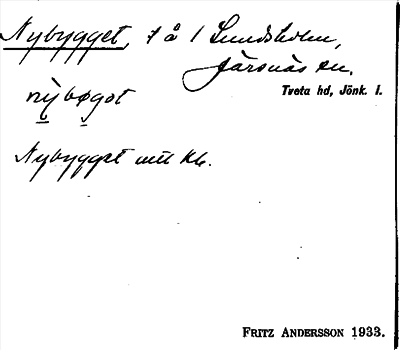 Nybygget, t å 1 Lundsholm,
Järsnäs sn.
Tveta hd, Jönk. l.
nỳbøgət
Nybygget mtl kb.
FRITZ ANDERSSON 1933.